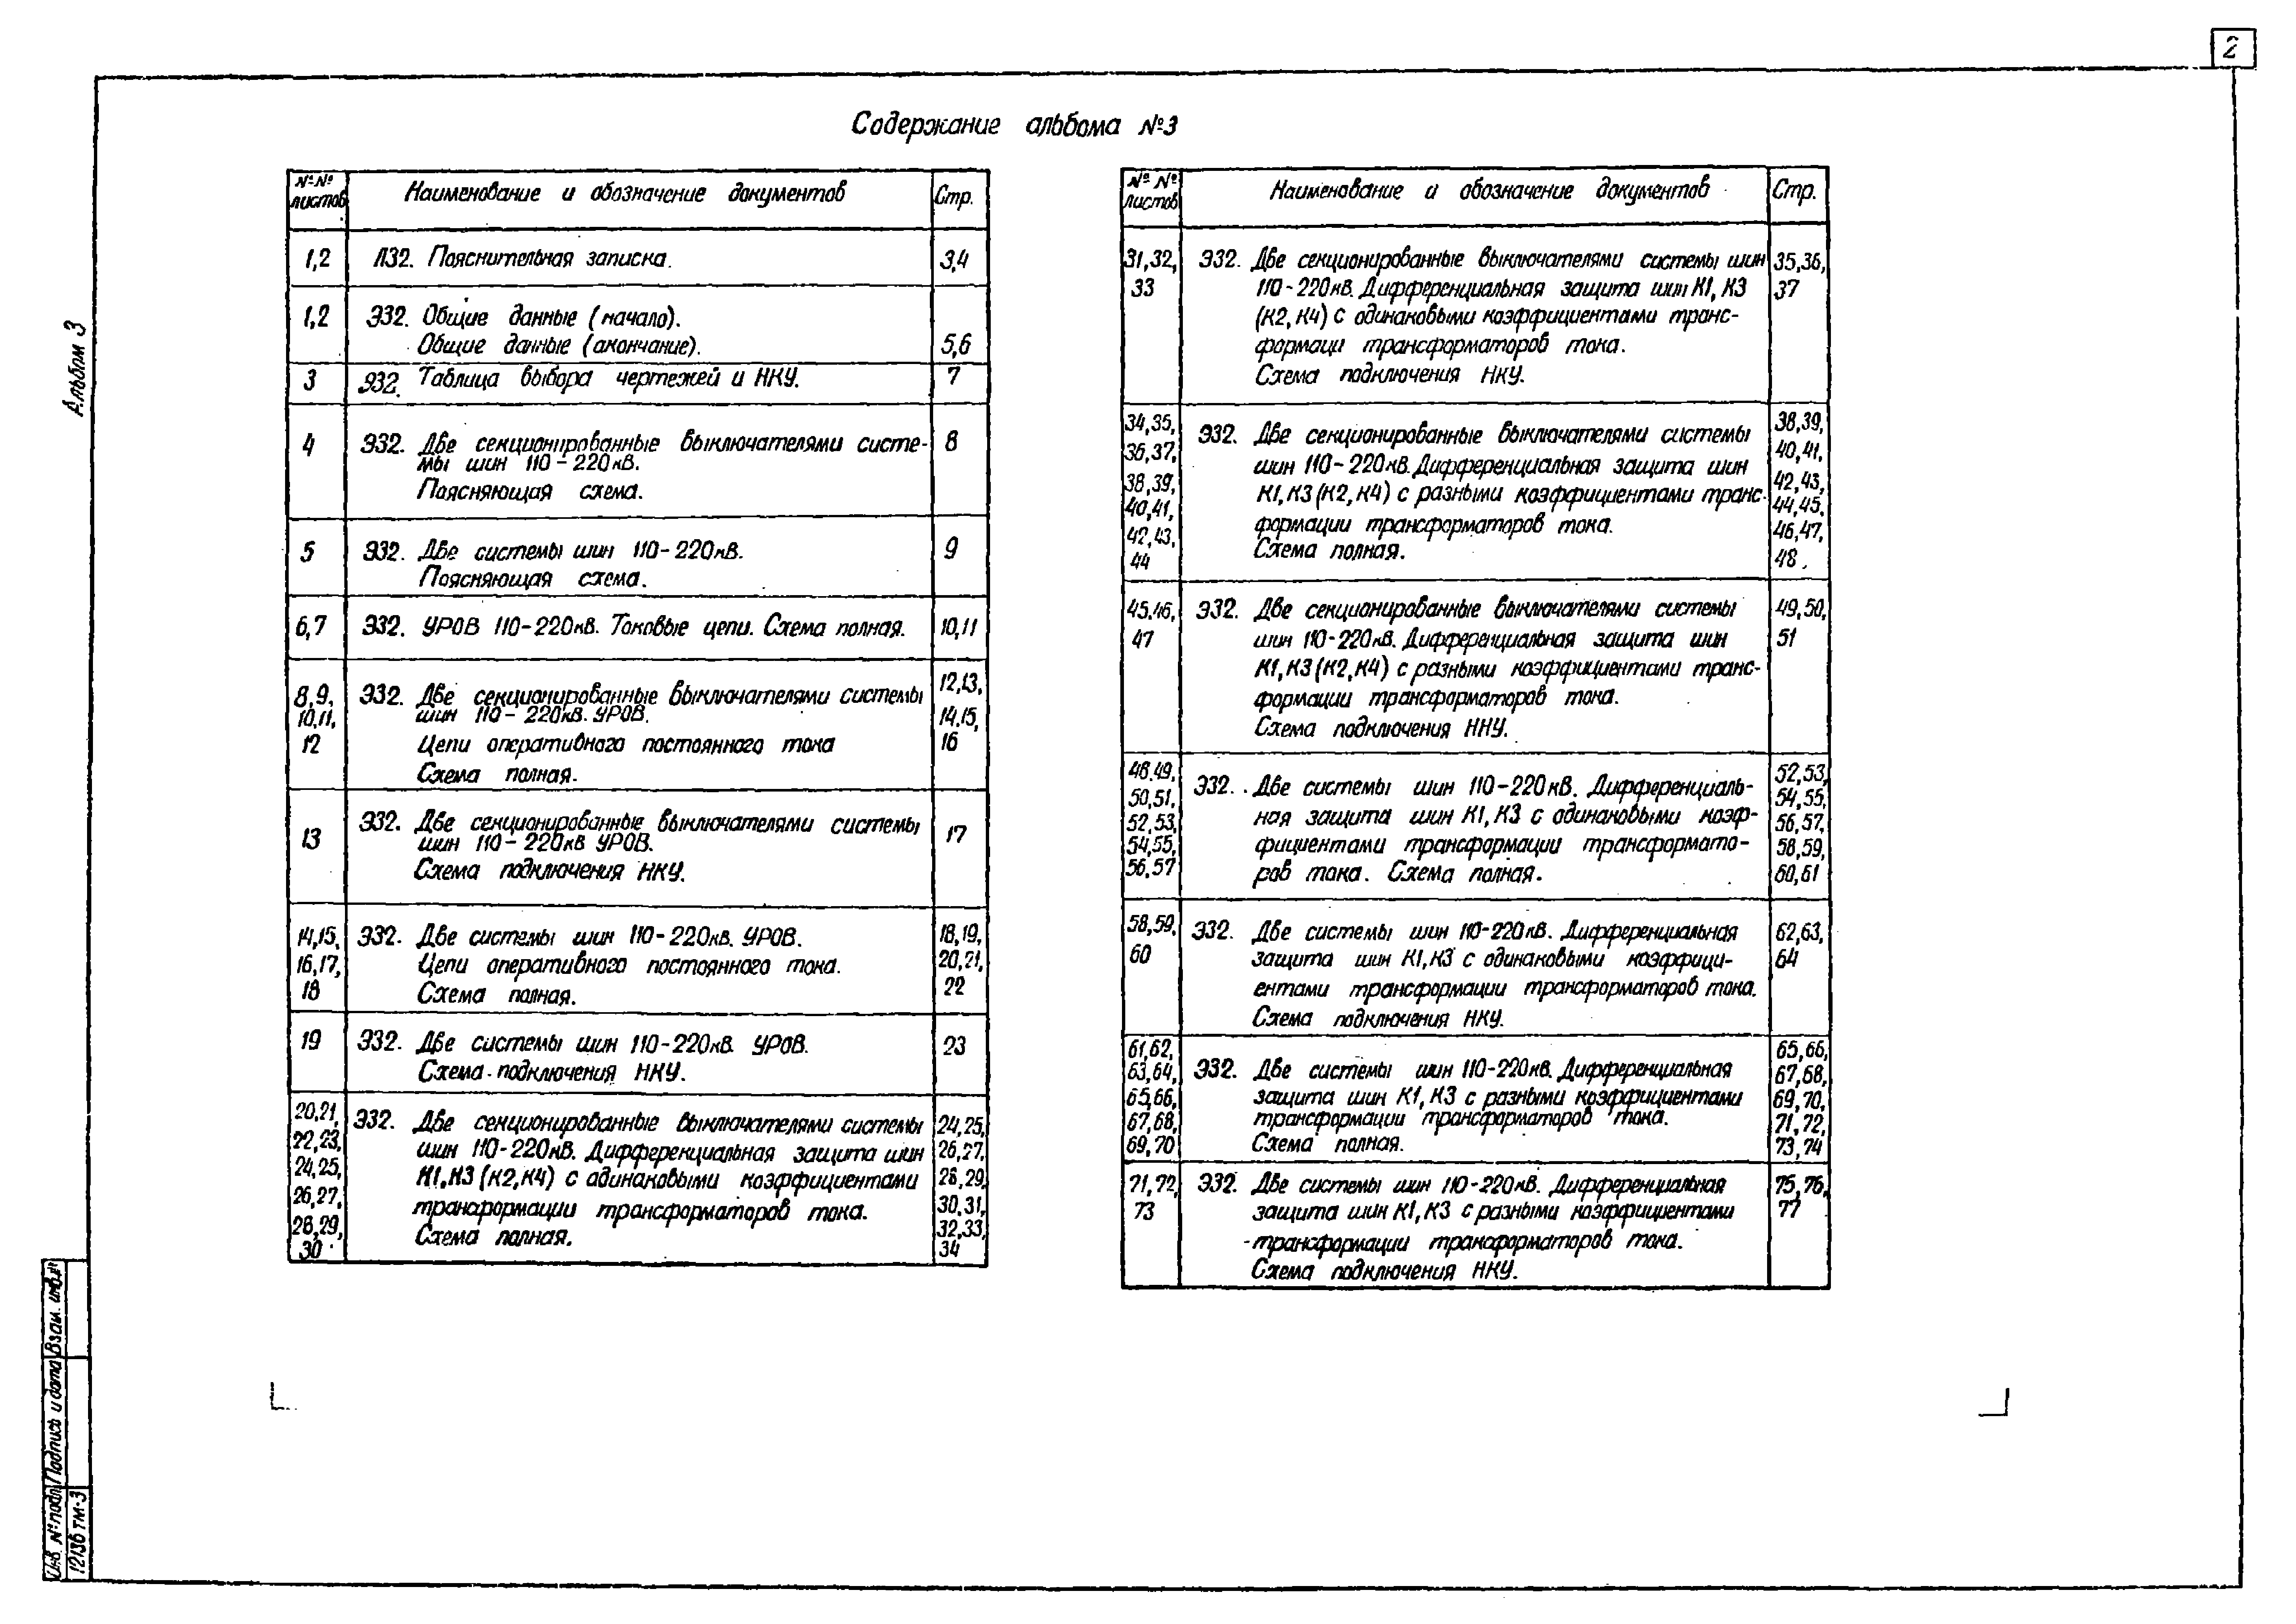 2
Содержание альбома №3
Альбом 3
№№ листов
Наименование и обозначение документов
Стр.
1,2
ПЗ2. Пояснительная записка.
3,4
1,2
ЭЗ2. Общие данные (начало).
Общие данные (окончание).
5,6
3
ЭЗ2. Таблица выбора чертежей и НКУ.
7
4
ЭЗ2. Две секционированные выключателями систе-
мы шин 110-220кВ.
Поясняющая схема.
8
5
ЭЗ2. Две системы шин 110-220кВ.
Поясняющая схема.
9
6,7
ЭЗ2. УРОВ 110-220кВ. Токовые цепи. Схема полная.
10,11
8,9,
10,11,
12
ЭЗ2. Две секционированные выключателями системы
шин 110-220кВ. УРОВ.
Цепи оперативного постоянного тока
Схема полная.
12,13,
14,15,
16
13
ЭЗ2. Две секционированные выключателями системы
шин 110-220кВ УРОВ.
Схема подключения НКУ.
17
14,15,
16,17,
18
ЭЗ2. Две системы шин 110-220кВ. УРОВ.
Цепи оперативного постоянного тока.
Схема полная.
18,19,
20,21,
22
19
ЭЗ2. Две системы шин 110-220кВ УРОВ.
Схема подключения НКУ.
23
20,21,
22,23,
24,25,
26,27,
28,29,
30
ЭЗ2. Две секционированные выключателями системы
шин 110-220кВ. Дифференциальная защита шин
К1,К3 (К2,К4) с одинаковыми коэффициентами
трансформации трансформаторов тока.
Схема полная.
24,25,
26,27,
28,29,
30,31,
32,33,
34
№ № листов
Наименование и обозначение документов
Стр.
31,32,
33
ЭЗ2. Две секционированные выключателями системы шин
110-220кВ. Дифференциальная защита шин К1, К3
(К2, К4) с одинаковыми коэффициентами транс-
формаци трансформаторов тока.
Схема подключения НКУ.
35,36,
37
34,35,
36,37,
38,39,
40,41,
42,43,
44
ЭЗ2. Две секционированные выключателями системы
шин 110-220кВ. Дифференциальная защита шин
К1, К3 (К2, К4) с разными коэффициентами транс-
формации трансформаторов тока.
Схема полная.
38,39,
40,41,
42,43,
44,45,
46,47,
48.
45,46,
47
ЭЗ2. Две секционированные выключателями системы
шин 110-220кВ. Дифференциальная защита шин
К1, К3 (К2, К4) с разными коэффициентами транс-
формации трансформаторов тока.
Схема подключения НКУ.
49,50,
51
48,49,
50,51,
52,53,
54,55,
56,57
ЭЗ2. Две системы шин 110-220кВ. Дифференциаль-
ная защита шин К1, К3 с одинаковыми коэф-
фициентами трансформации трансформато-
ров тока. Схема полная.
52,53,
54,55,
56,57,
58,59,
60,61
58,59,
60
ЭЗ2. Две системы шин 110-220кВ. Дифференциальная
защита шин К1,К3 с одинаковыми коэффици-
ентами трансформации трансформаторов тока.
Схема подключения НКУ.
62,63,
64
61,62,
63,64,
65,66,
67,68,
69,70
ЭЗ2. Две системы шин 110-220кВ. Дифференциальная
защита шин К1, К3 с разными коэффициентами
трансформации трансформаторов тока.
Схема полная.
65,66,
67,68,
69,70,
71,72,
73,74
71,72,
73
ЭЗ2. Две системы шин 110-220кВ. Дифференциальная
защита шин К1, К3 с разными коэффициентами
трансформации трансформаторов тока.
Схема подключения НКУ.
75,76,
77
Взам. инв.№
Подпись и дата
Инв. № подл.
12136 тм-3